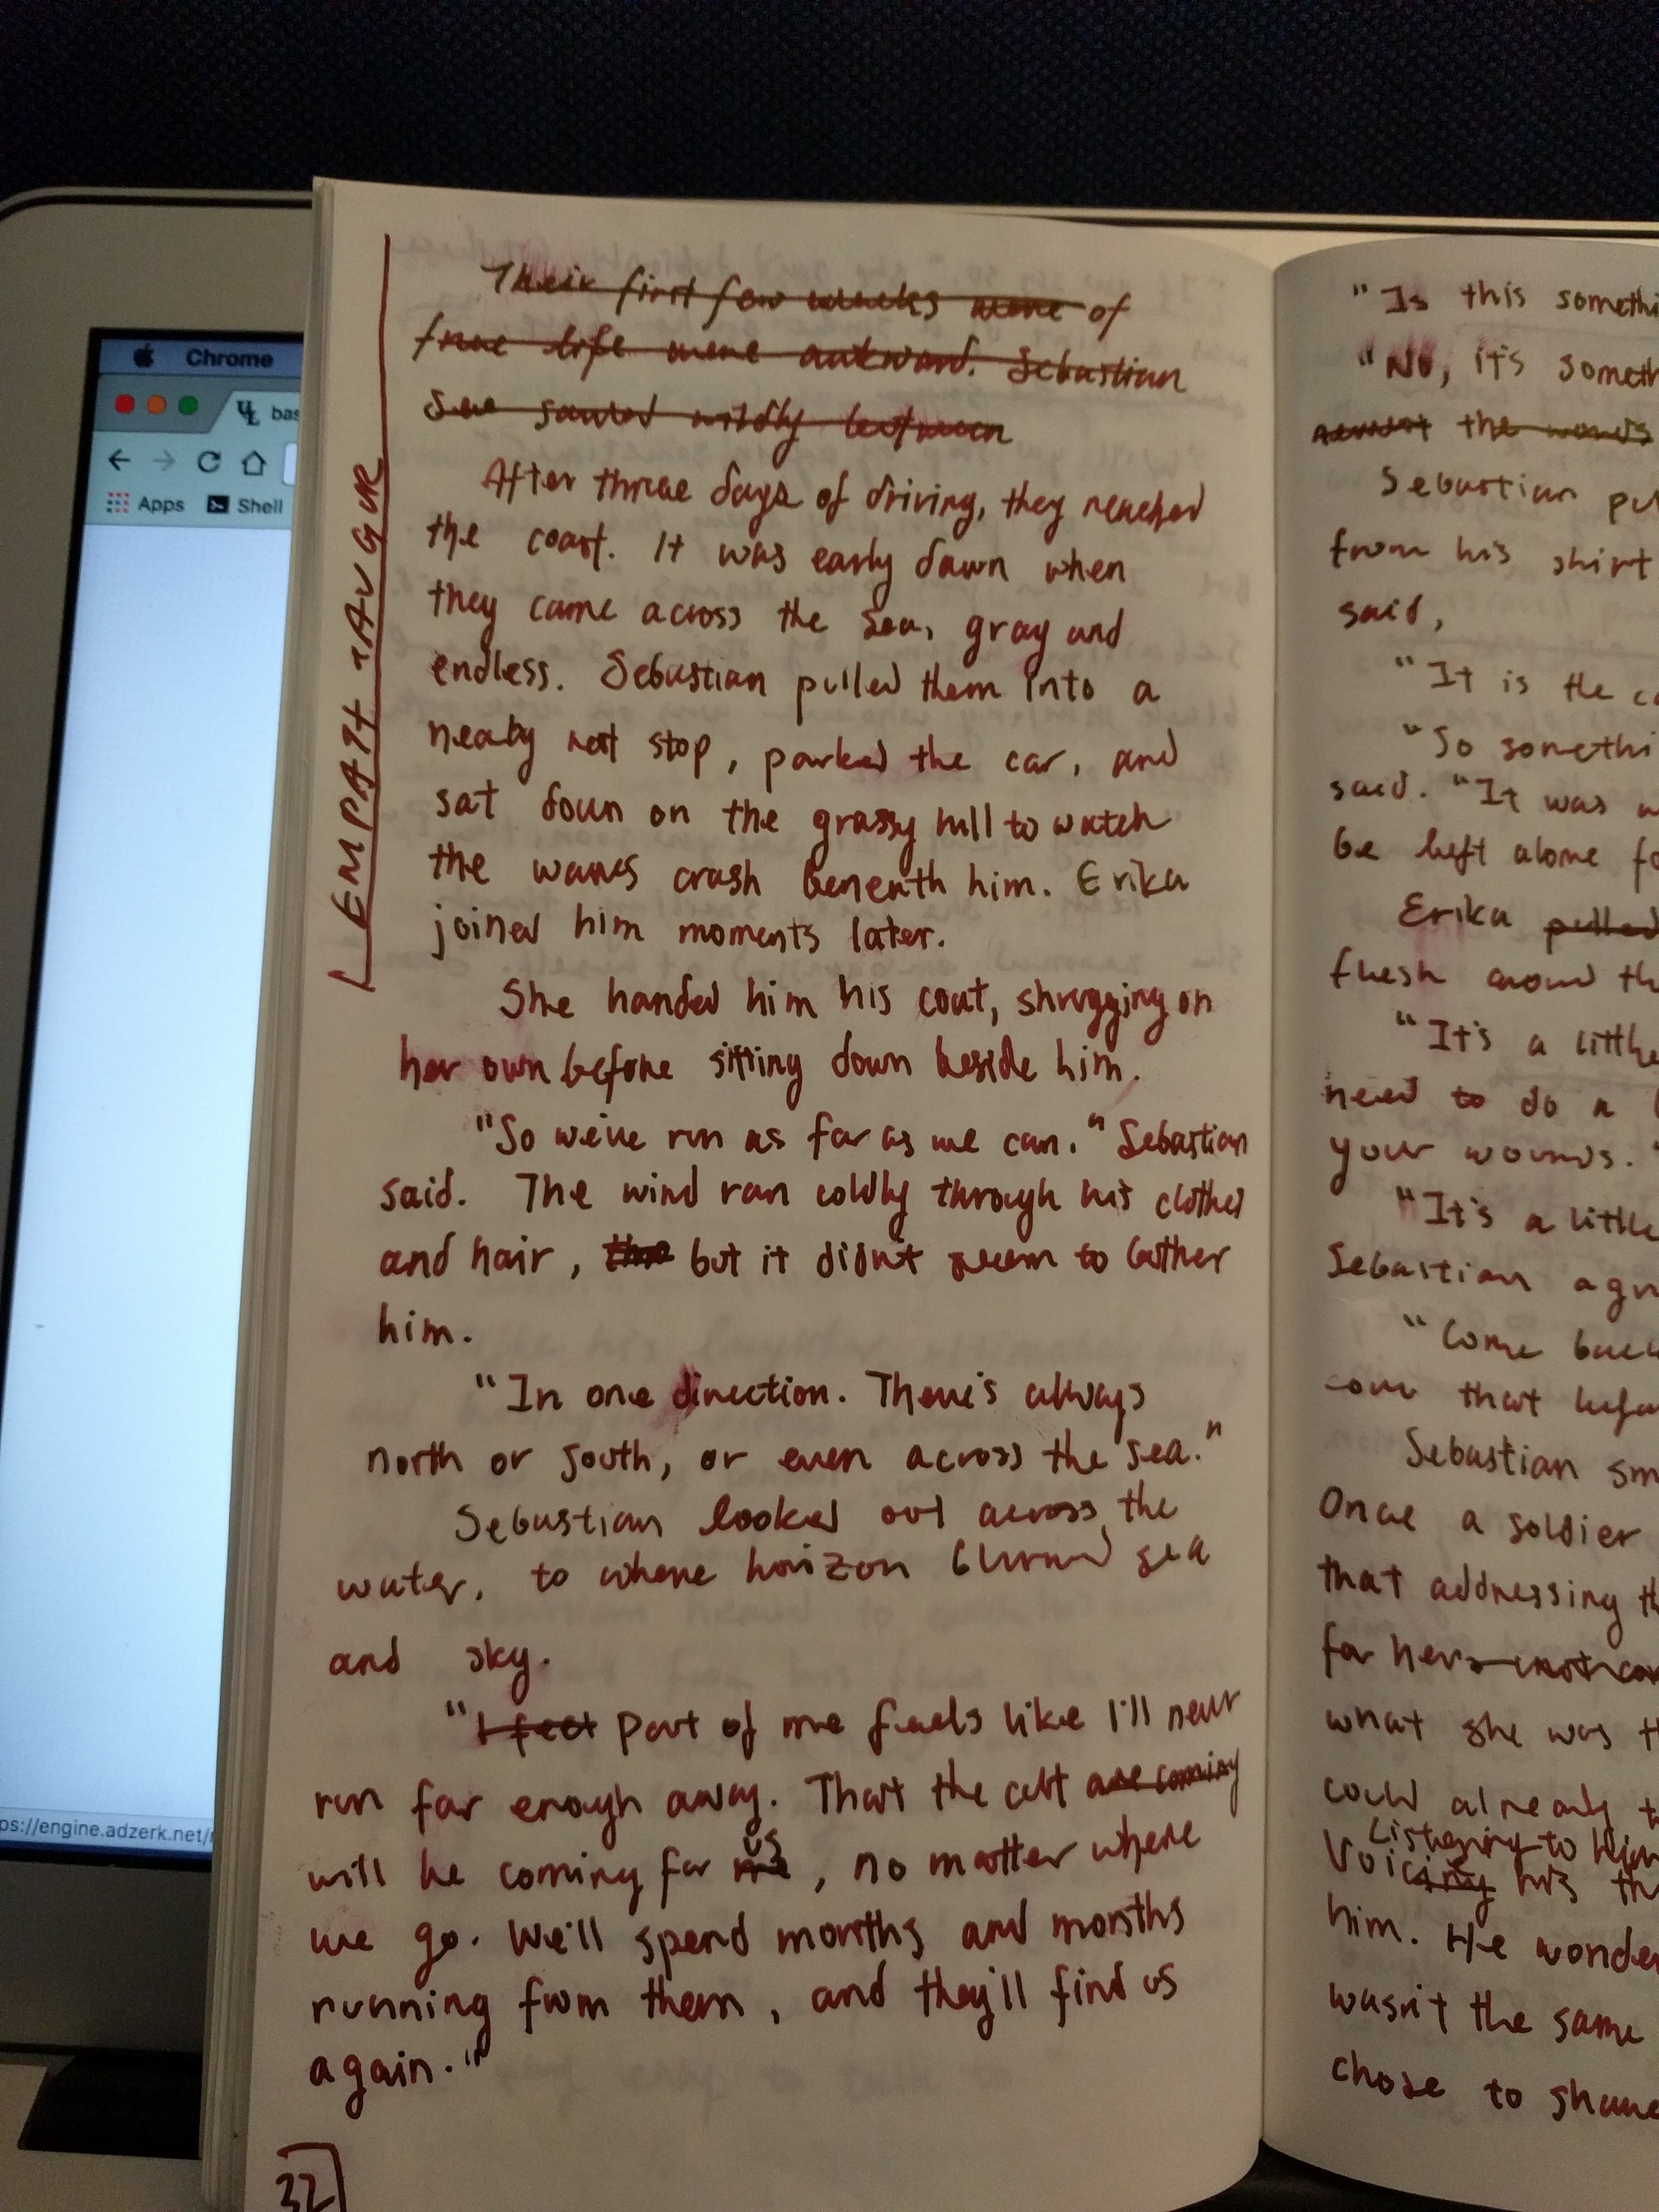 Chrome
bas
Apps Shell
ps://engine.adzerk.net/
EMPATH
Their first few weeks were of
free life were awkward. Sebastian
wildly between
After three days of driving, they reached
the coast. It was early dawn when
they came across the sea, gray and
endless. Sebastian pulled them into a
neaby rest stop, parked the car, and
sat down on the grassy hill to watch
the waves crash beneath him. Erika
joined him moments later.
She handed him his coat, shrugging on
her own before sitting down beside him.
"So we've run as far as we can." Sebastian
said. The wind ran coldly through his clothes
and hair, the but it didn't seem to bother
him.
"In one direction. There's always
north or south, or even across the sea."
Sebastian looked out across the
water, to where horizon blurred sea
and sky.
"I feel part of me feels like I'll never
run far enough away. That the cult are coming
will be coming for me us, no matter where
we go. We'll spend months and months
running from them, and they'll find us
again."
32
"Is this somethi
"No, it's someth
the words
Sebastian pul
from his shirt
said,
"It is the co
"So somethi
said. "It was
be left alone fo
Erika pulled
flesh around th
"It's a little
need to do a
your wounds."
"It's a little
Sebastian agr
"Come back
that befo
Sebastian sm
Once a soldier
that addressing th
for her not
what she was th
could already t
Listening to him
Voicing his th
him. He wonder
wasn't the same
chose to share